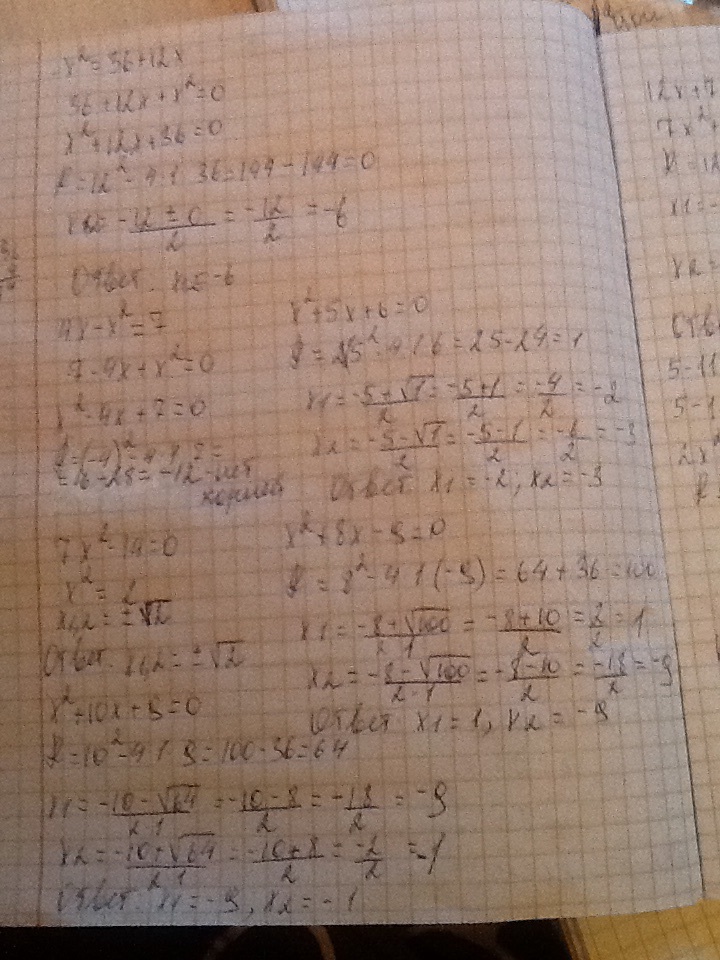 x² = 36+12x
36+12x+x²=0
x²+12x+36=0
D=12²-4·1·36=144-144=0
= -12±0/2 = -12/2 = -6
Ответ: x=-6
4x-x²=7
7-4x+x²=0
x²-4x+7=0
D=(-4)²-4·1·7=
=16-28=-12 нет
корней
x²+5x+6=0
D=5²-4·1·6=25-24=1
x1=-5+√1/2=-5+1/2=-4/2=-2
x2=-5-√1/2=-5-1/2=-6/2=-3
Ответ: x1=-2; x2=-3
7x²-14=0
x²=2
x1,2=±√2
Ответ: x1,2=±√2
x²+8x-9=0
D=8²-4·1·(-9)=64+36=100
x1=-8+√100/2·1=-8+10/2=2/2=1
x2=-8-√100/2·1=-8-10/2=-18/2=-9
Ответ: x1=1, x2=-9
x²+10x+9=0
D=10²-4·1·9=100-36=64
x1=-10-√64/2·1=-10-8/2=-18/2=-9
x2=-10+√64/2·1=-10+8/2=-2/2=-1
Ответ: x1=-9, x2=-1
12x+7
7x²+
D=12
x1=-
x2=
Отв
5-11
5-1
2x²